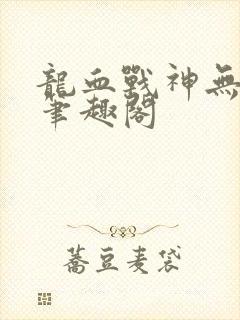 龍血戰神無
筆趣閣
蕎豆麦袋